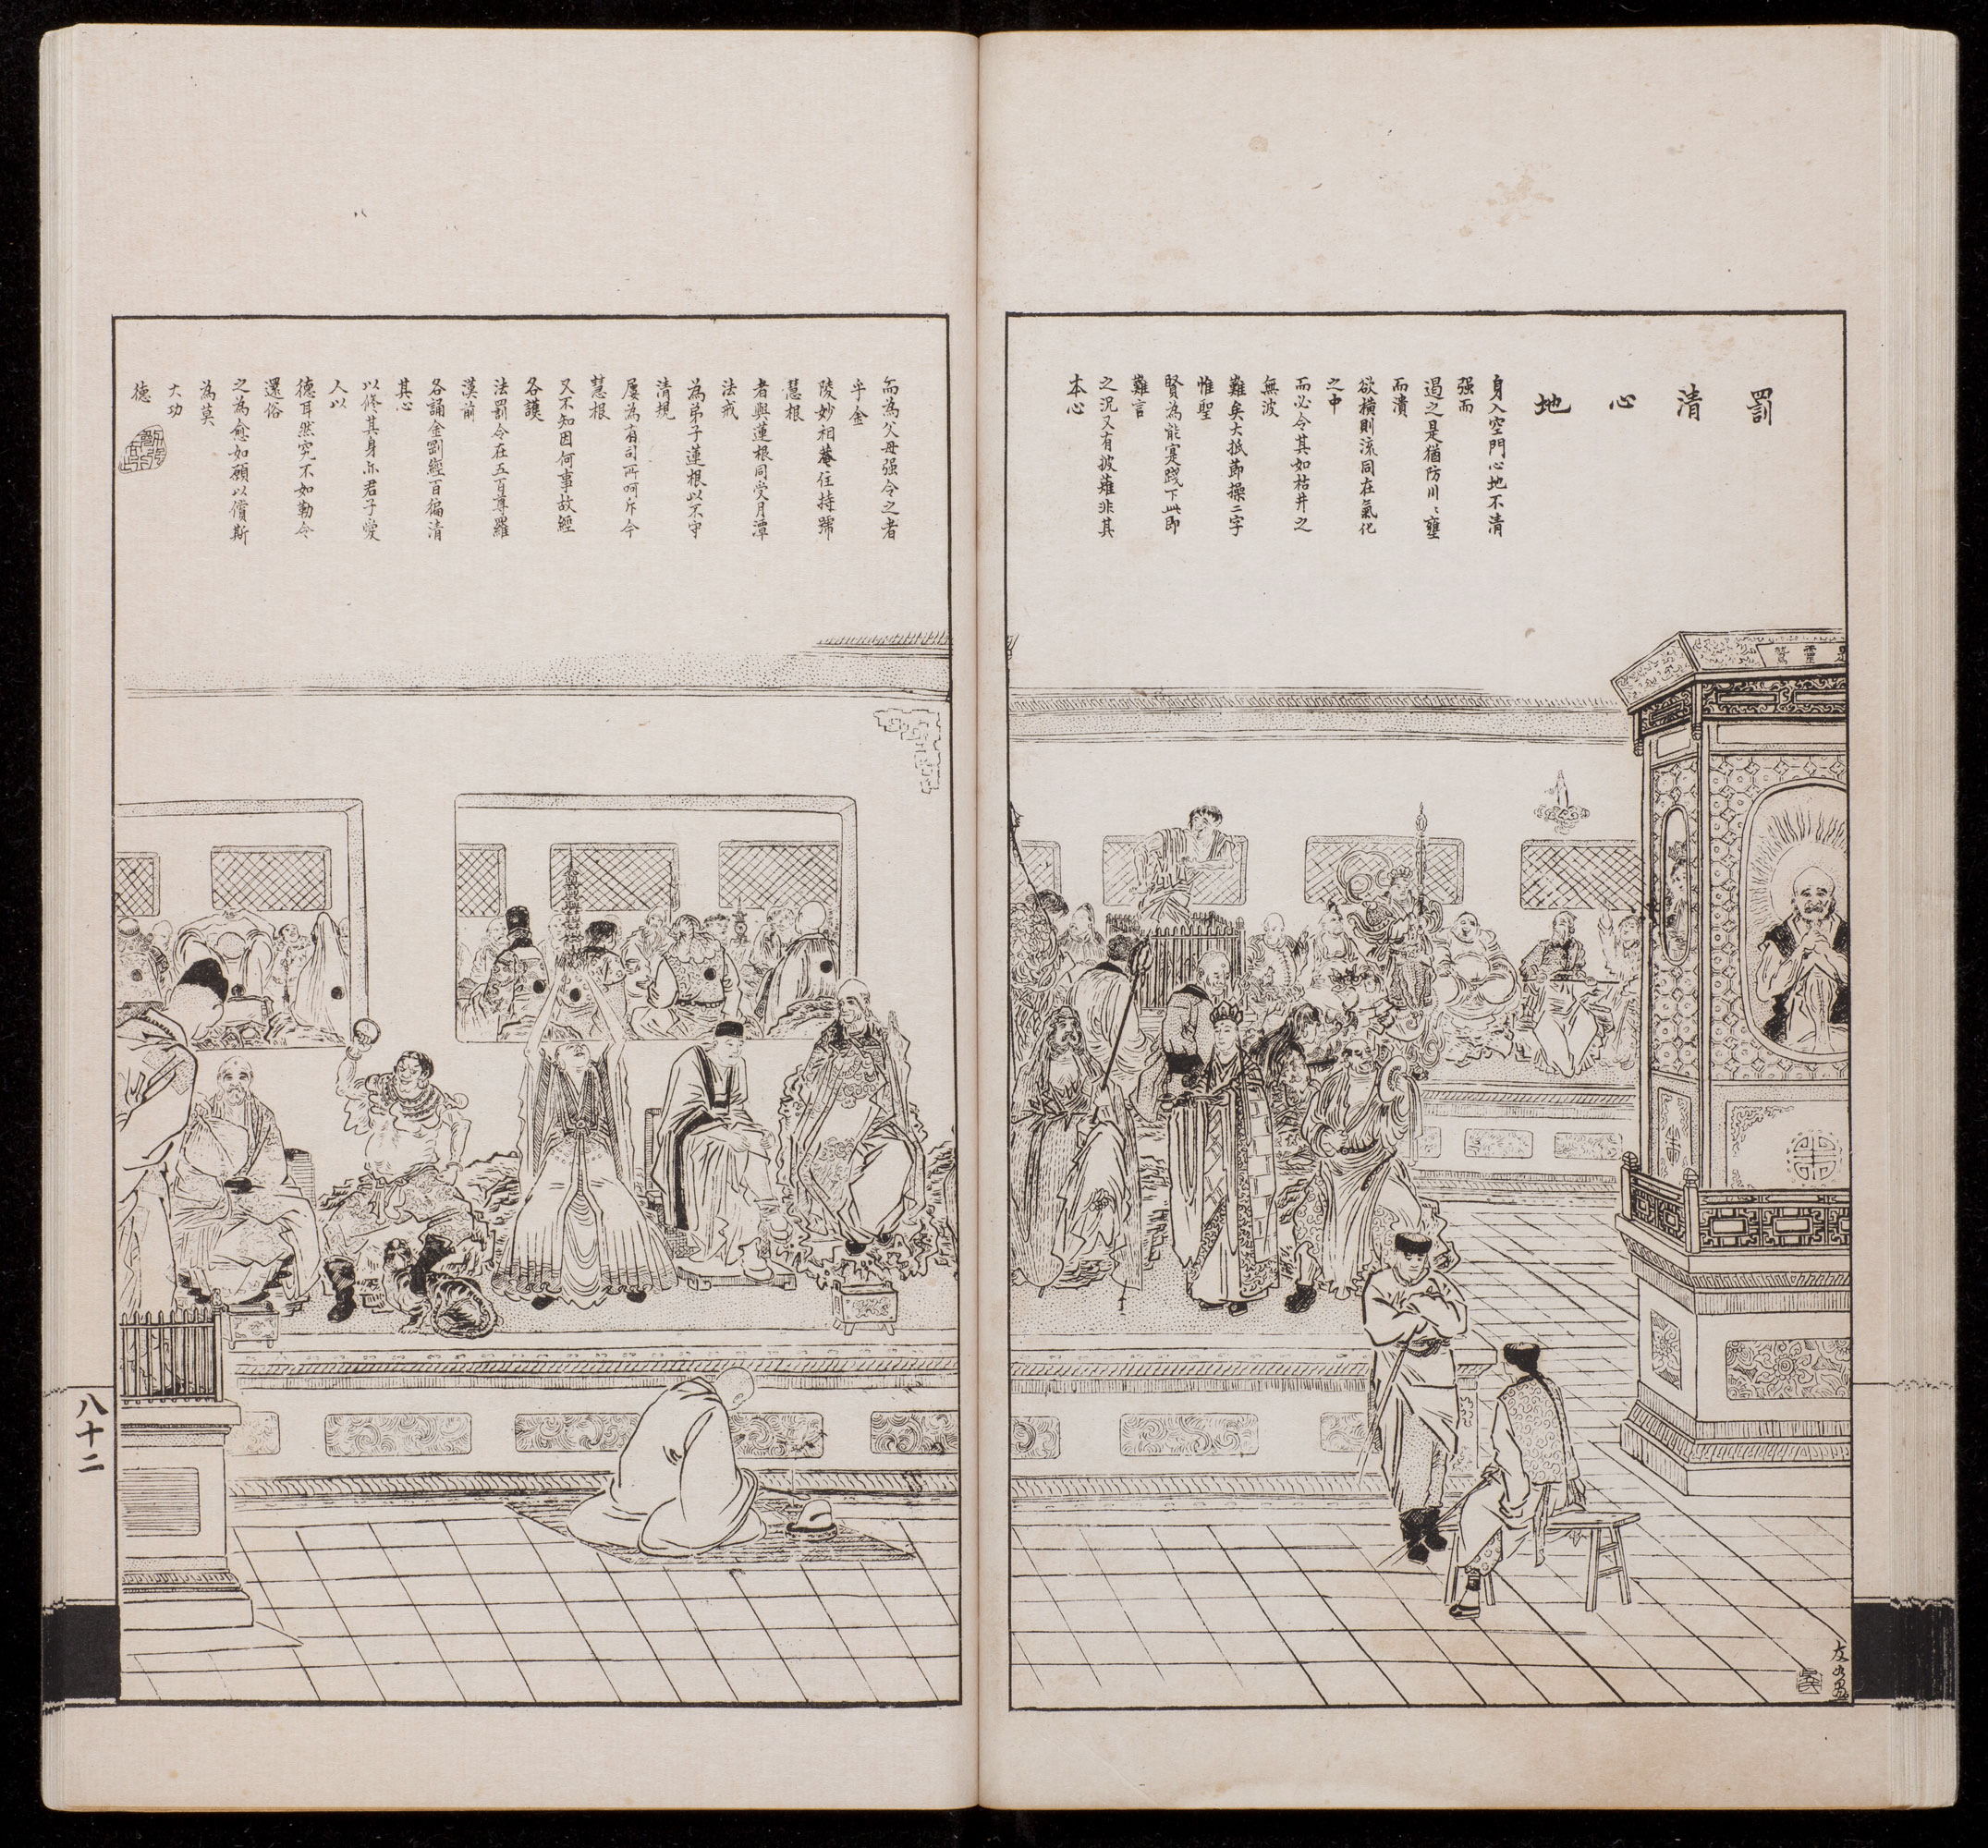 罰清心地
身入空門心地不清
强而
遏之是猶防川〻壅
而潰
欲橫則流同在氣化
之中
而必令其如枯井之
無波
難矣大抵節操二字
惟聖
賢為能寔踐下此即
難言
之況又有披薙非其
本心
而為父母强令之者
乎金
陵妙相菴住持號
慧根
者與蓮根同受月潭
法戒
為弟子蓮根以不守
清規
屢為有司所呵斥今
慧根
又不知因何事故經
各護
法罰令在五百尊羅
漢前
各誦金剛經百徧清
其心
以修其身亦君子愛
人以
德耳然究不如勒令
還俗
之為愈如願以償斯
為莫
大功
德
靈鷲
友如畫
八十二